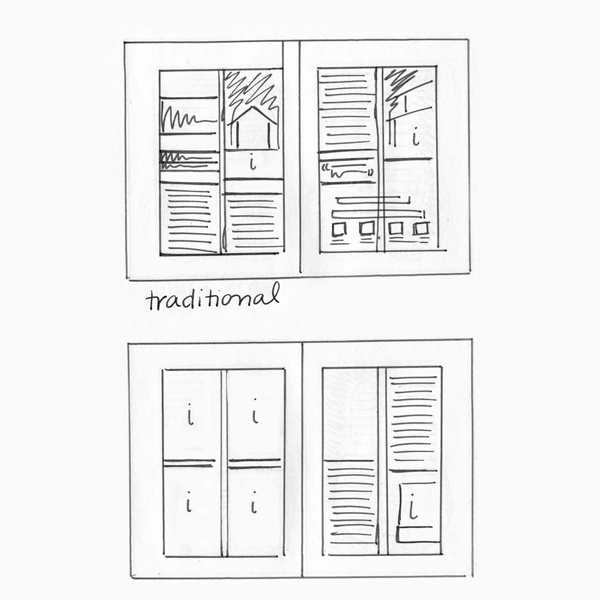 i
i
traditional
i
i
i
i
i